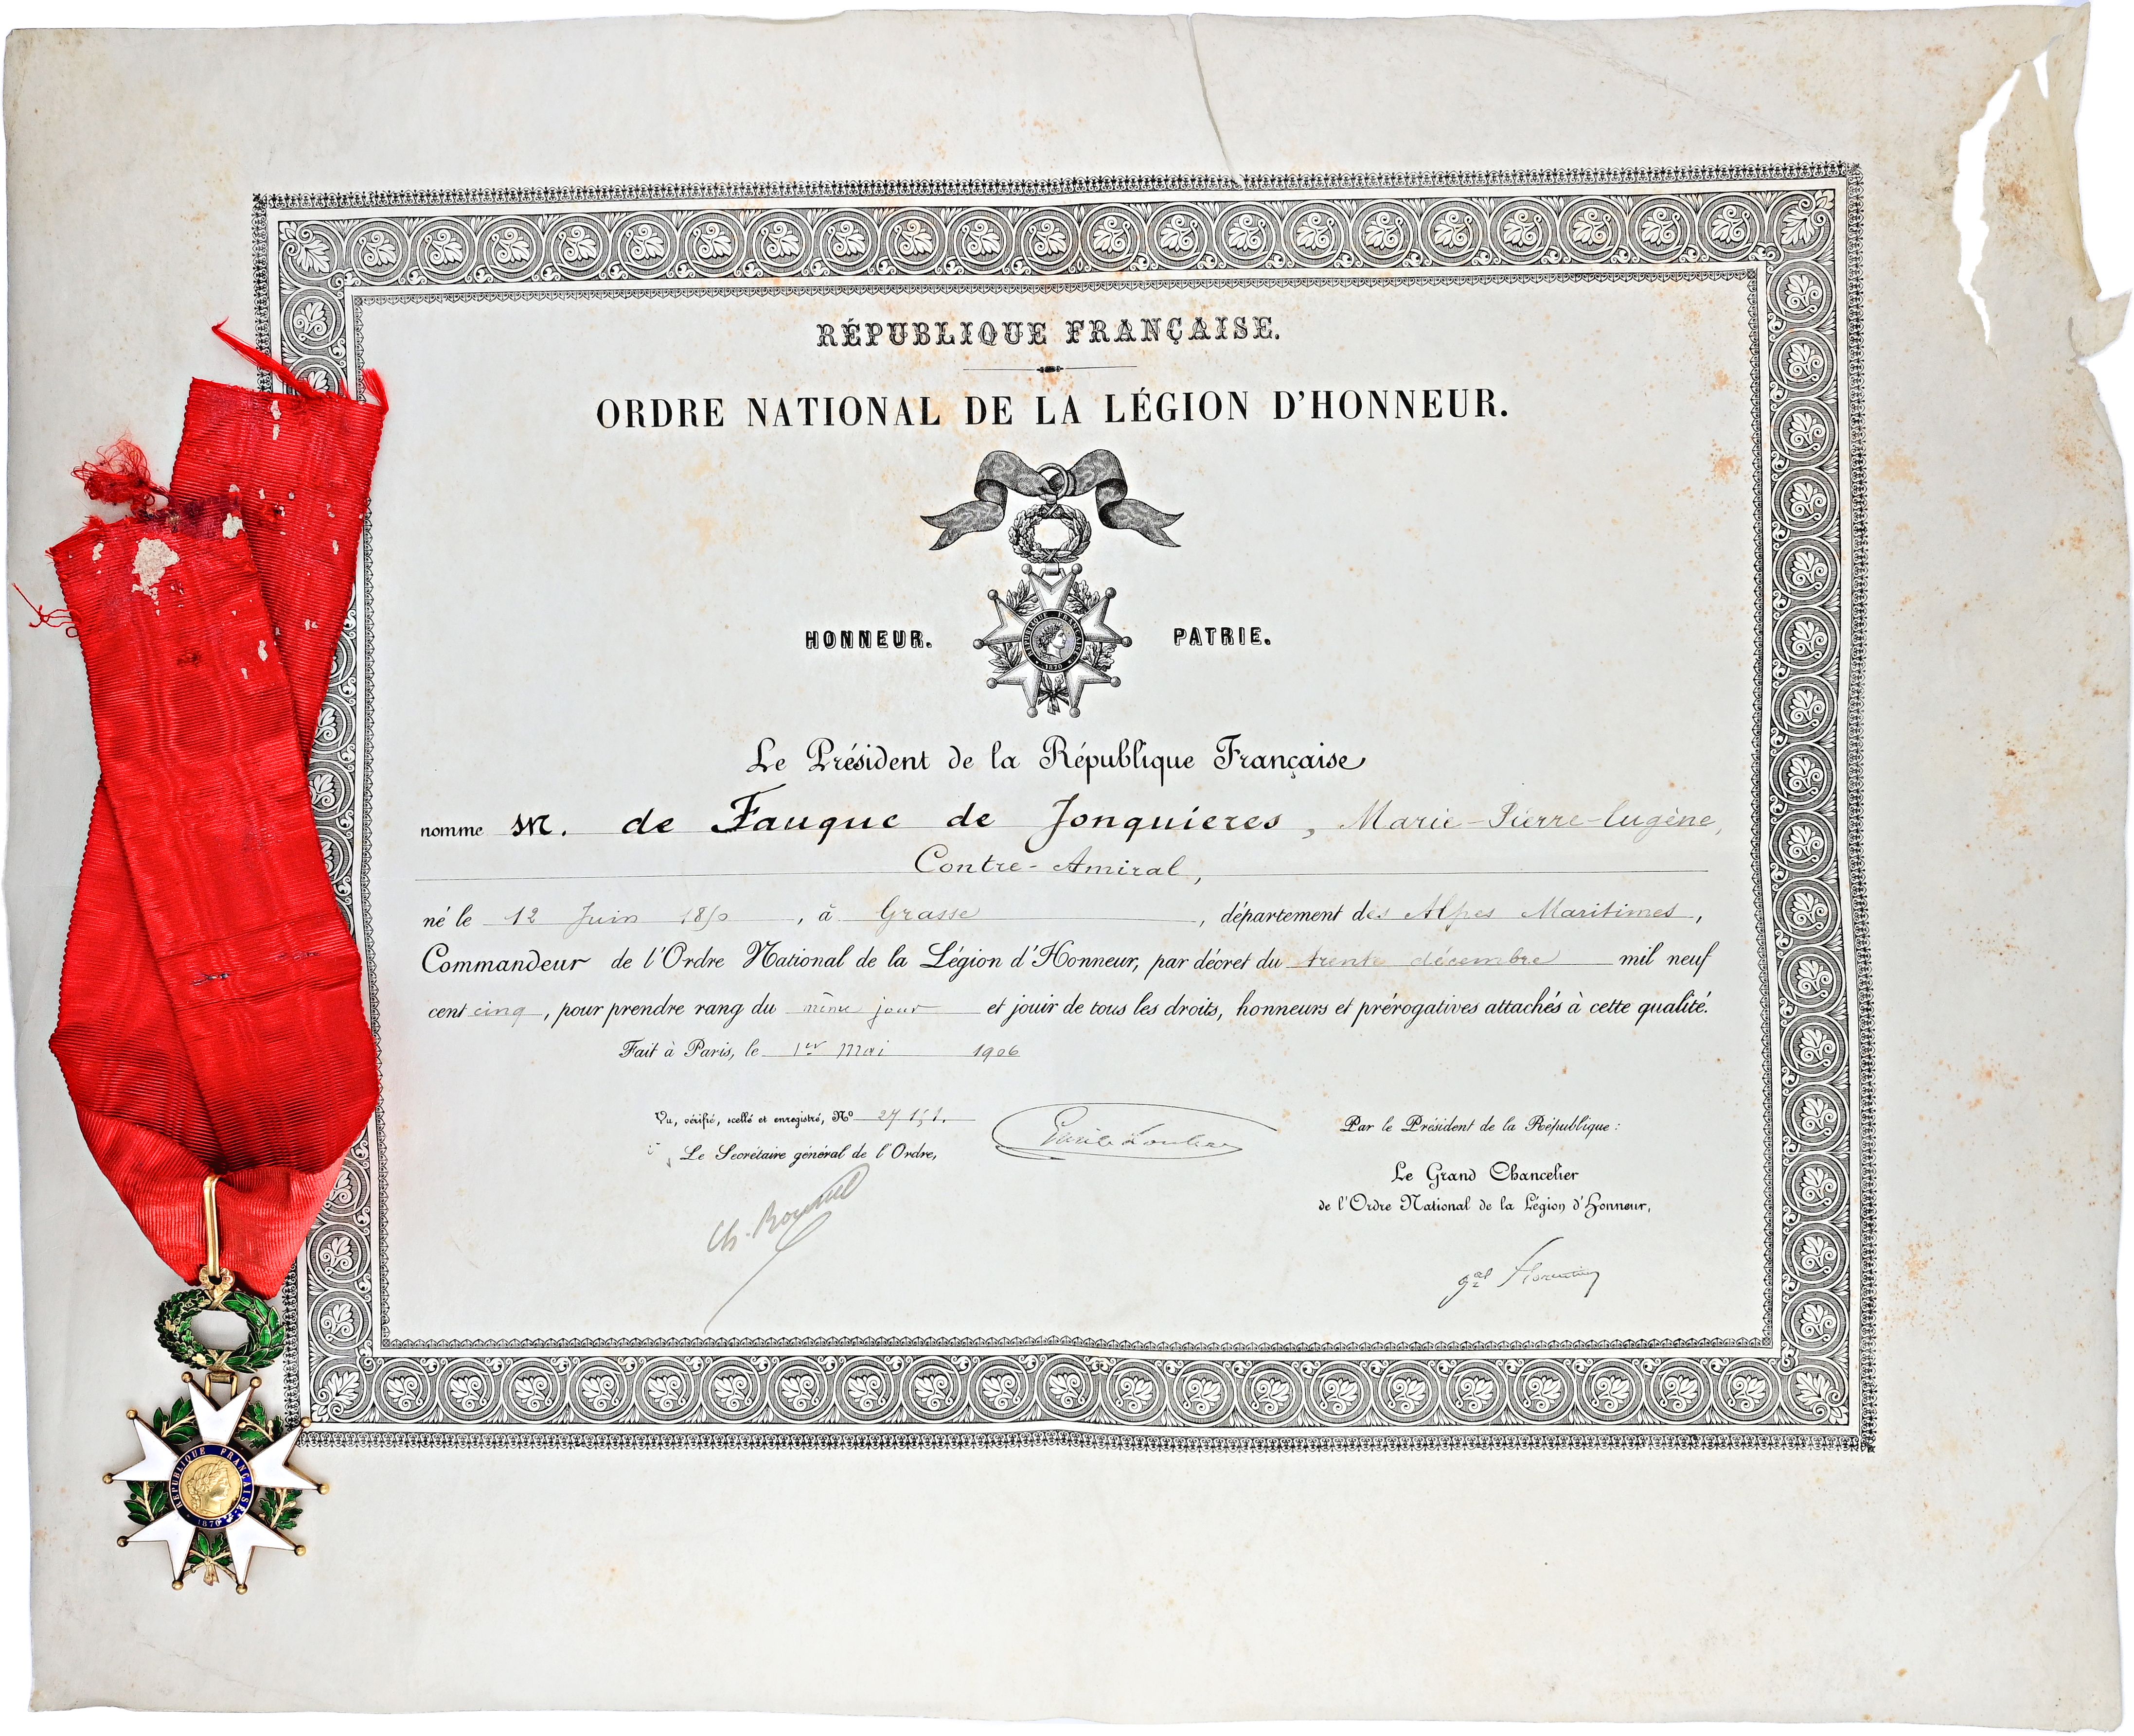 RÉPUBLIQUE FRANÇAISE.
ORDRE NATIONAL DE LA LÉGION D'HONNEUR.
REPUBLIQUE FRANÇAISE
1870
HONNEUR. PATRIE.
Le Président de la République Française
nomme M. de Fauque de Jonquières, Marie-Pierre-Eugène,
Contre-Amiral,
né le 12 Juin 1850, à Grasse, département des Alpes Maritimes,
Commandeur de l'Ordre National de la Légion d'Honneur, par décret du trente décembre mil neuf
cent cinq, pour prendre rang du même jour et jouir de tous les droits, honneurs et prérogatives attachés à cette qualité.
Fait à Paris, le 1er Mai 1906
Vu, vérifié, scellé et enregistré, No
Le Secrétaire général de l'Ordre,
Emile Loubet
Par le Président de la République:
Le Grand Chancelier
de l'Ordre National de la Légion d'Honneur,
Ch.
Gal Florentin
REPUBLIQUE FRANÇAISE
1870